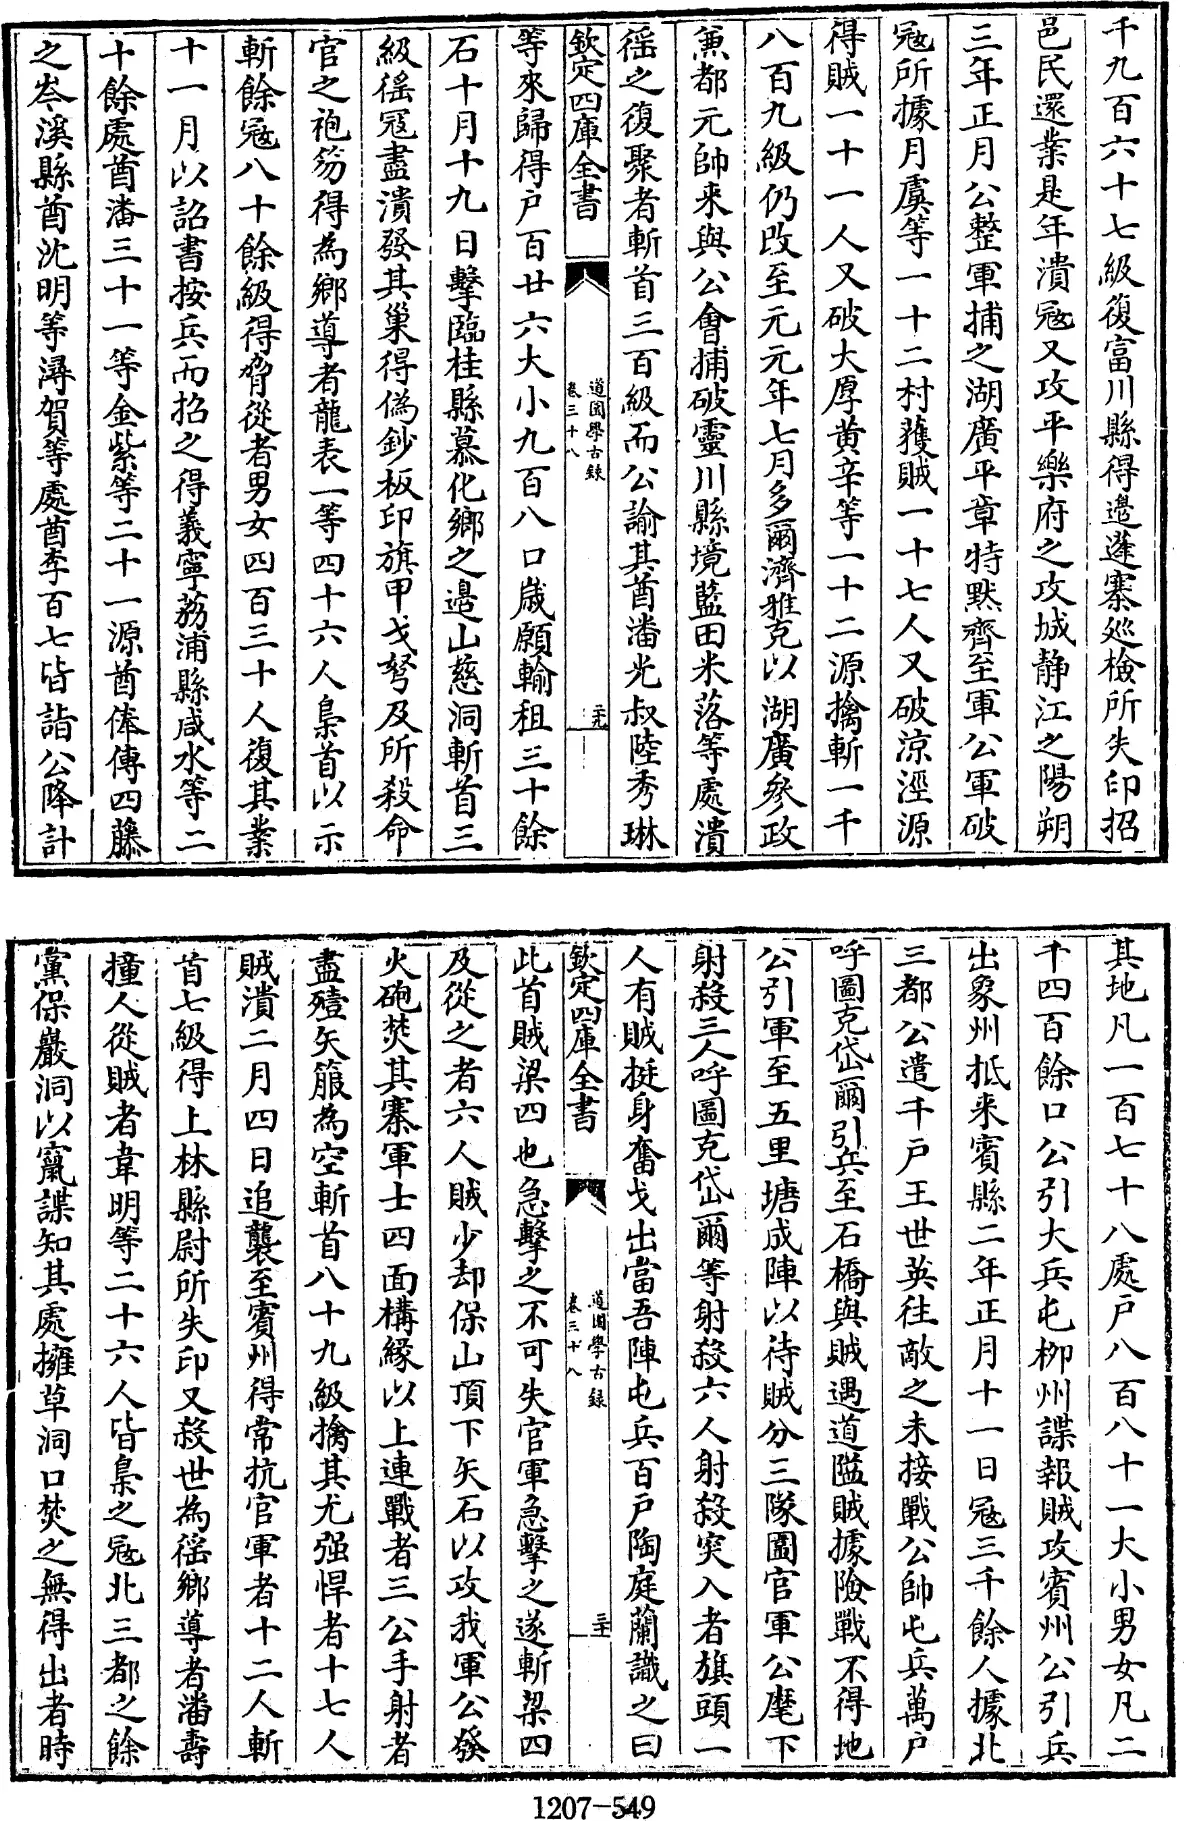 千九百六十七級復富川縣得邉蓬寨廵檢所失印招
邑民還業是年潰寇又攻平樂府之攻城靜江之陽朔
三年正月公整軍捕之湖廣平章特默齊至軍公軍破
寇所據月虞等一十二村獲賊一十七人又破涼溼源
得賊一十一人又破大厚黄辛等一十二源擒斬一千
八百九級仍改至元元年七月多爾濟雅克以湖廣叅政
兼都元帥来與公會捕破靈川縣境藍田米落等處潰
徭之復聚者斬首三百級而公諭其酋潘光叔陸秀琳
欽定四庫全書
道園學古錄
卷三十八
二十九
等來歸得户百廿六大小九百八口歲願輸租三十餘
石十月十九日擊臨桂縣慕化鄉之邉山慈洞斬首三
級徭冦盡潰發其巢得偽鈔板印旗甲戈弩及所殺命
官之袍笏得為鄉導者龍表一等四十六人梟首以示
斬餘寇八十餘級得脅從者男女四百三十人復其業
十一月以詔書按兵而招之得義寧荔浦縣咸水等二
十餘處酋潘三十一等金紫等二十一源酋俸傳四藤
之岑溪縣酋沈明等潯賀等處酋李百七皆詣公降計
其地凡一百七十八處户八百八十一大小男女凡二
千四百餘口公引大兵屯栁州諜報賊攻賓州公引兵
出象州抵来賓縣二年正月十一日寇三千餘人據北
三都公遣千户王世英往敵之未接戰公帥屯兵萬户
呼圖克岱爾引兵至石橋與賊遇道隘賊據險戰不得地
公引軍至五里塘成陣以待賊分三隊圖官軍公麾下
射殺三人呼圖克岱爾等射殺六人射殺突入者旗頭一
人有賊挺身奮戈出當吾陣屯兵百户陶庭蘭識之曰
欽定四庫全書
道園學古錄
卷三十八
三十
此首賊梁四也急擊之不可失官軍急擊之遂斬梁四
及從之者六人賊少却保山頂下矢石以攻我軍公發
火砲焚其寨軍士四面構緣以上連戰者三公手射者
盡殪矢箙為空斬首八十九級擒其尤强悍者十七人
賊潰二月四日追襲至賓州得常抗官軍者十二人斬
首七級得上林縣尉所失印又殺世為徭鄉導者潘壽
撞人從賊者韋明等二十六人皆梟之寇北三都之餘
黨保巖洞以竄諜知其處擁草洞口焚之無得出者時
1207-549